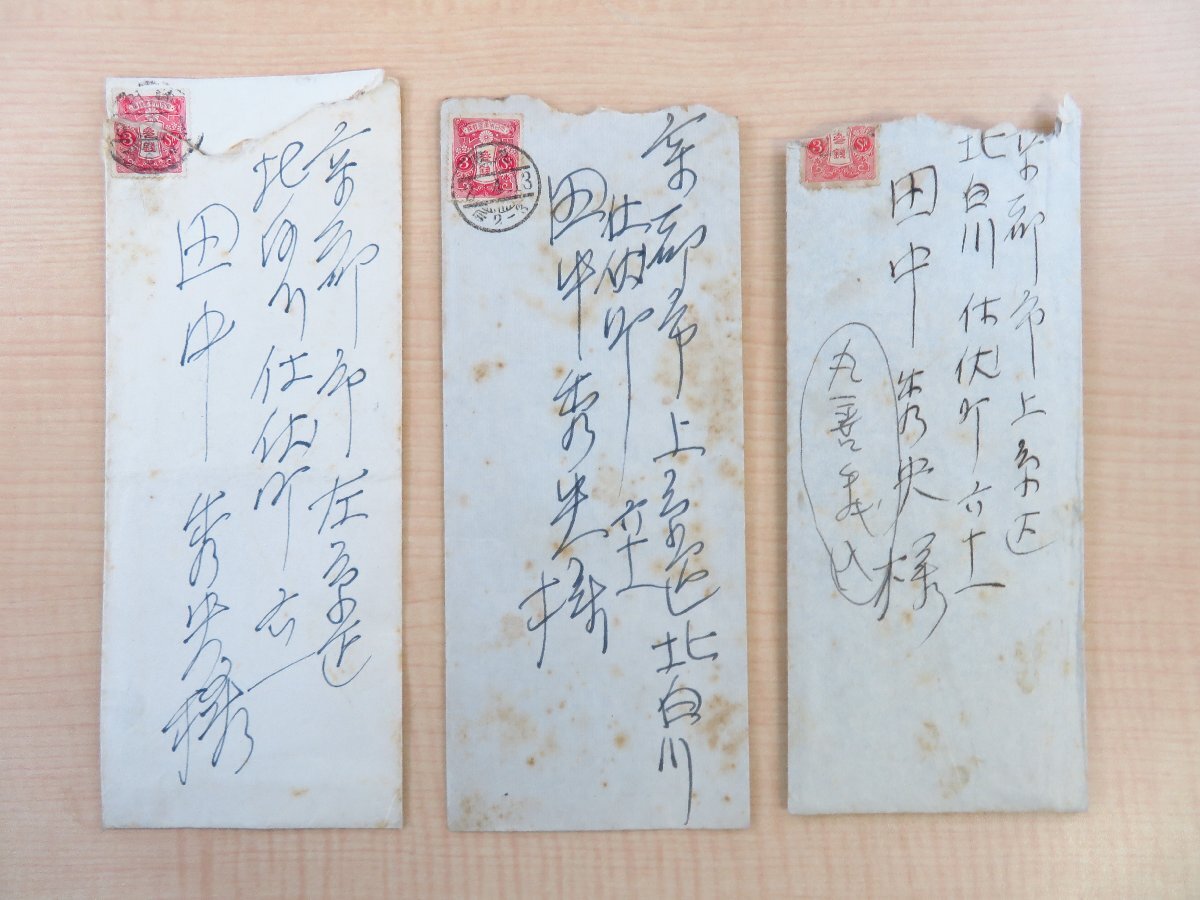 京都市左京区
北白川仕伏町六一
田中秀央様
京都市上京区北白川
仕伏町六十一
田中秀央様
3
京都市上京区
北白川仕伏町六十一
田中秀央様
3